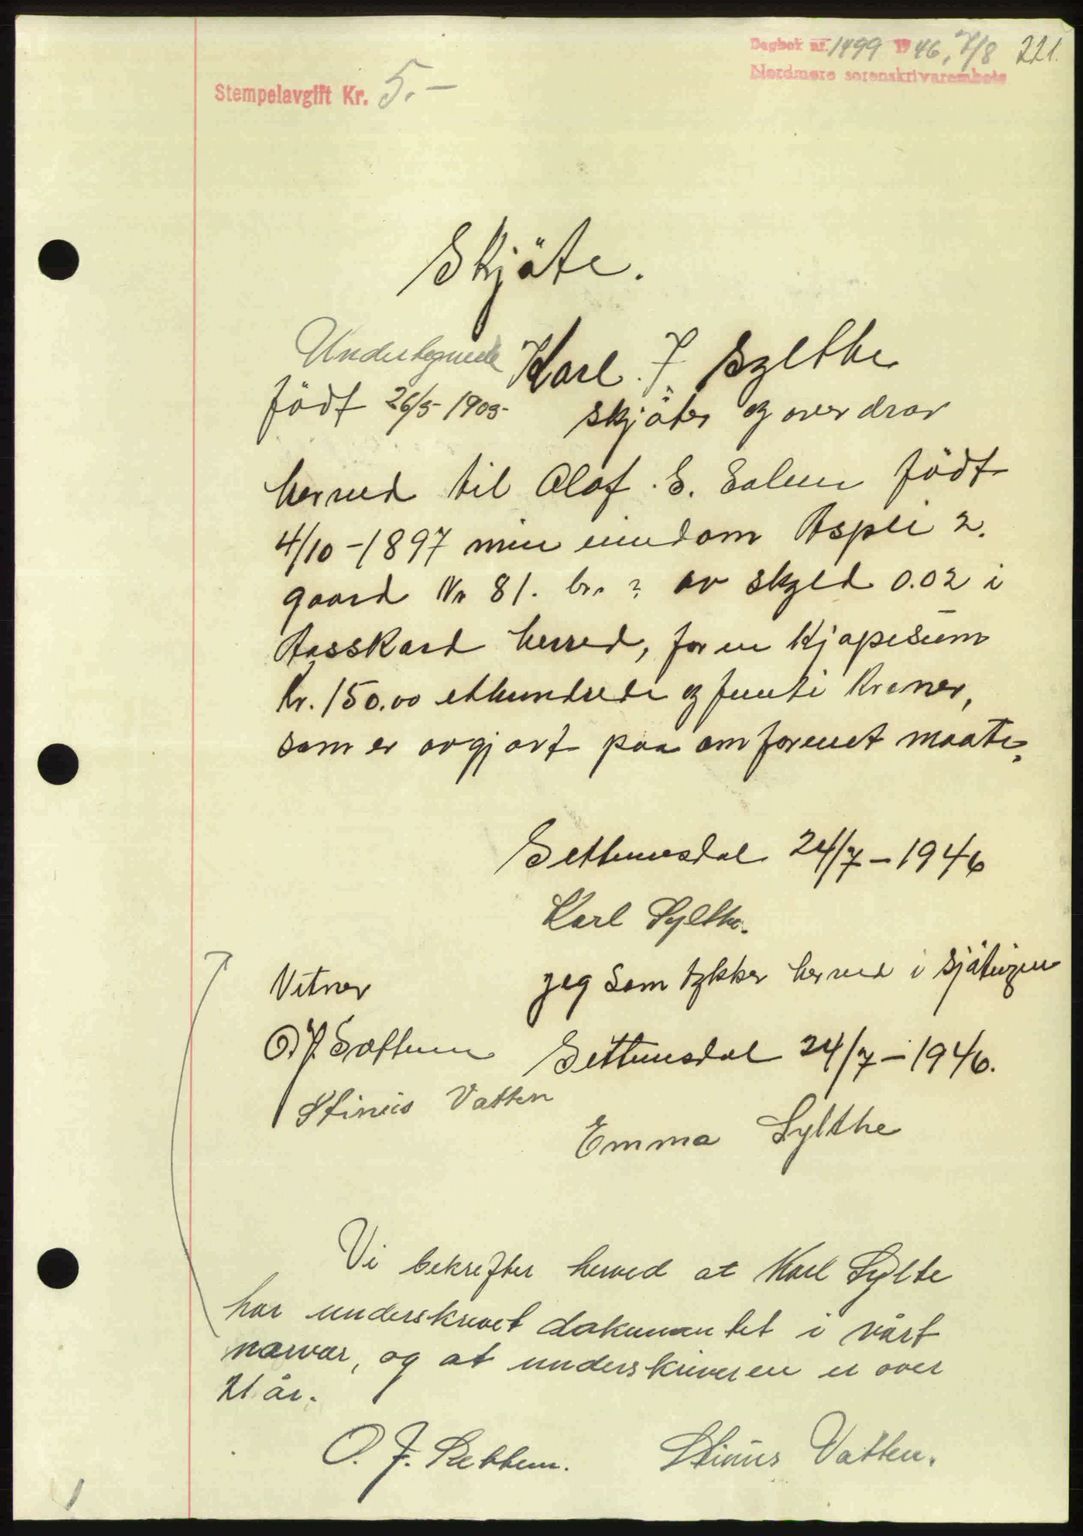 Dagbok nr. 1499 1946, 7/8 221.
Nordmøre sorenskrivarembete
Stempelavgift Kr. 5.-
Skjöte.
Undertegnede Karl J Sylthe
födt 26/5-1905- skjöter og overdrar
herved til Olaf E. Solem födt
4/10-1897 min eiendom Aspli 2.
gaard Nr 81. br. ? av skyld 0.02 i
Aasskard herred, for en kjøpesum
Kr. 150.00 ethundrede og femti kroner,
som er avgjort paa omforenet maate.
Settemsdal 24/7-1946
Karl Sylthe.
Vitner jeg samtykker herved i skjötingen
O.J. Settem Settemsdal 24/7-1946.
Stinius Vatten
Emma Sylthe
Vi bekrefter herved at Karl Sylte
har underskrevet dokumentet i vårt
nærvær, og at underskriveren er over
21 år.
O. J. Settem. Stinius Vatten.
1